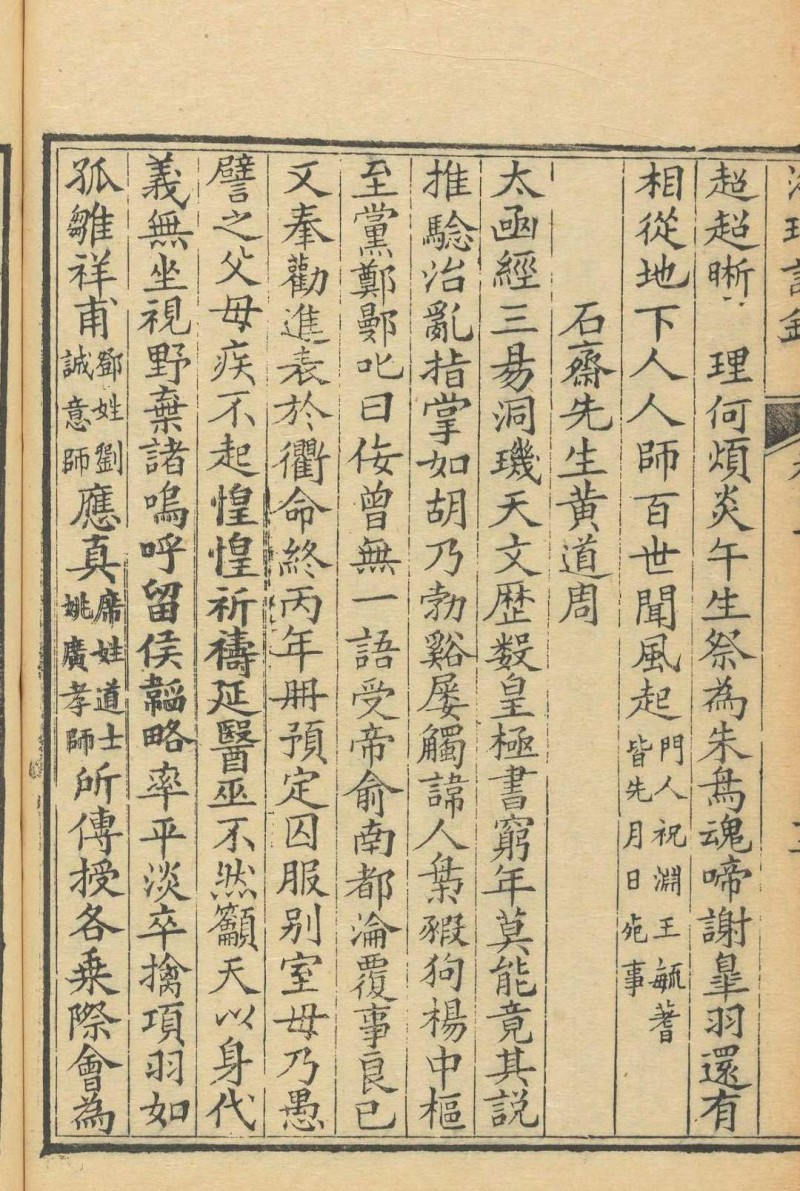 超超晰　理何煩炎午生祭為朱鳥魂啼謝臯羽還有
相從地下人人師百世聞風起門人祝淵王毓蓍皆先月日死事
石齋先生黄道周
太函經三易洞璣天文歴数皇極書窮年莫能竟其説
推驗治亂指掌如胡乃勃谿屡觸諱人梟豭狗楊中樞
至黨鄭鄤叱曰侫曾無一語受帝俞南都淪覆事良已
又奉勸進表於衢命終丙年冊預定囚服别室毋乃愚
譬之父母疾不起惶惶祈禱延醫巫不然籲天以身代
義無坐視野棄諸嗚呼留侯韜略率平淡卒擒項羽如
孤雛祥甫鄧姓劉誠意師應真席姓道士姚廣孝師所傳授各乗際會為